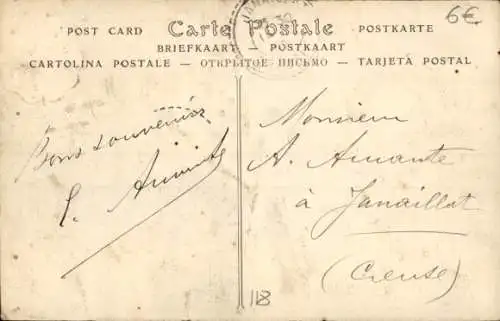 POST CARD Carte Postale POSTKARTE
6€
BRIEFKAART — POSTKAART
CARTOLINA POSTALE — ОТКРЫТОЕ ПИСЬМО — TARJETA POSTAL
Bons souvenirs
Monsieur
A. Amante
à Janaillat
(Creuse)